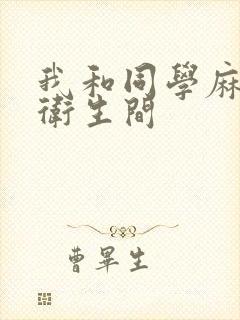 我和同學麻
衛生間
曹畢生